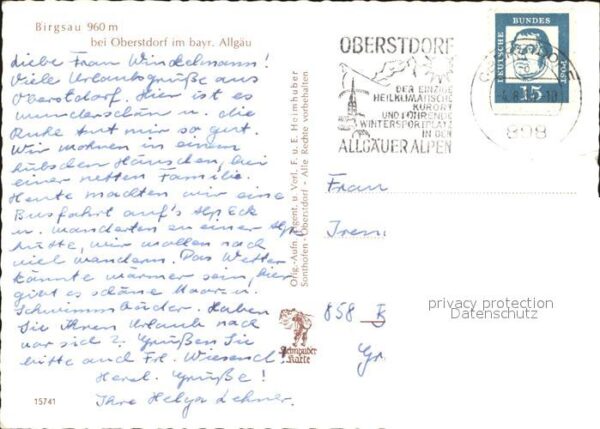 Birgsau 960 m
bei Oberstdorf im bayr. Allgäu
Liebe Frau Windelmann!
Viele Urlaubsgrüße aus
Oberstdorf. Hier ist es
wunderschön u. die
Ruhe tut mir so gut.
Wir wohnen in einem
hübschen Häuschen, bei
einer netten Familie.
Heute machten wir eine
Busfahrt auf's
u. wanderten zu einer Alp-
hütte, wir wollen noch
viel wandern. Das Wetter
könnte wärmer sein, hier
gibt es schöne Moor u.
Schwimmbäder. Haben
Sie Ihren Urlaub noch
vor sich? Grüßen Sie
bitte auch Frl.
Herzl. Grüße!
Ihre Helga Lehner.
15741
Orig.-Aufn., Eigent. u. Verl. F. u. E. Heimhuber
Sonthofen - Oberstdorf - Alle Rechte vorbehalten
Heimhuber
Karte
OBERSTDORF
DER EINZIGE
HEILKLIMATISCHE
KURORT
UND FÜHRENDE
WINTERSPORTPLATZ
IN DEN
ALLGÄUER ALPEN
898
DEUTSCHE
BUNDES
POST
15
Frau
Iren
858 B
Gr.
privacy protection
Datenschutz